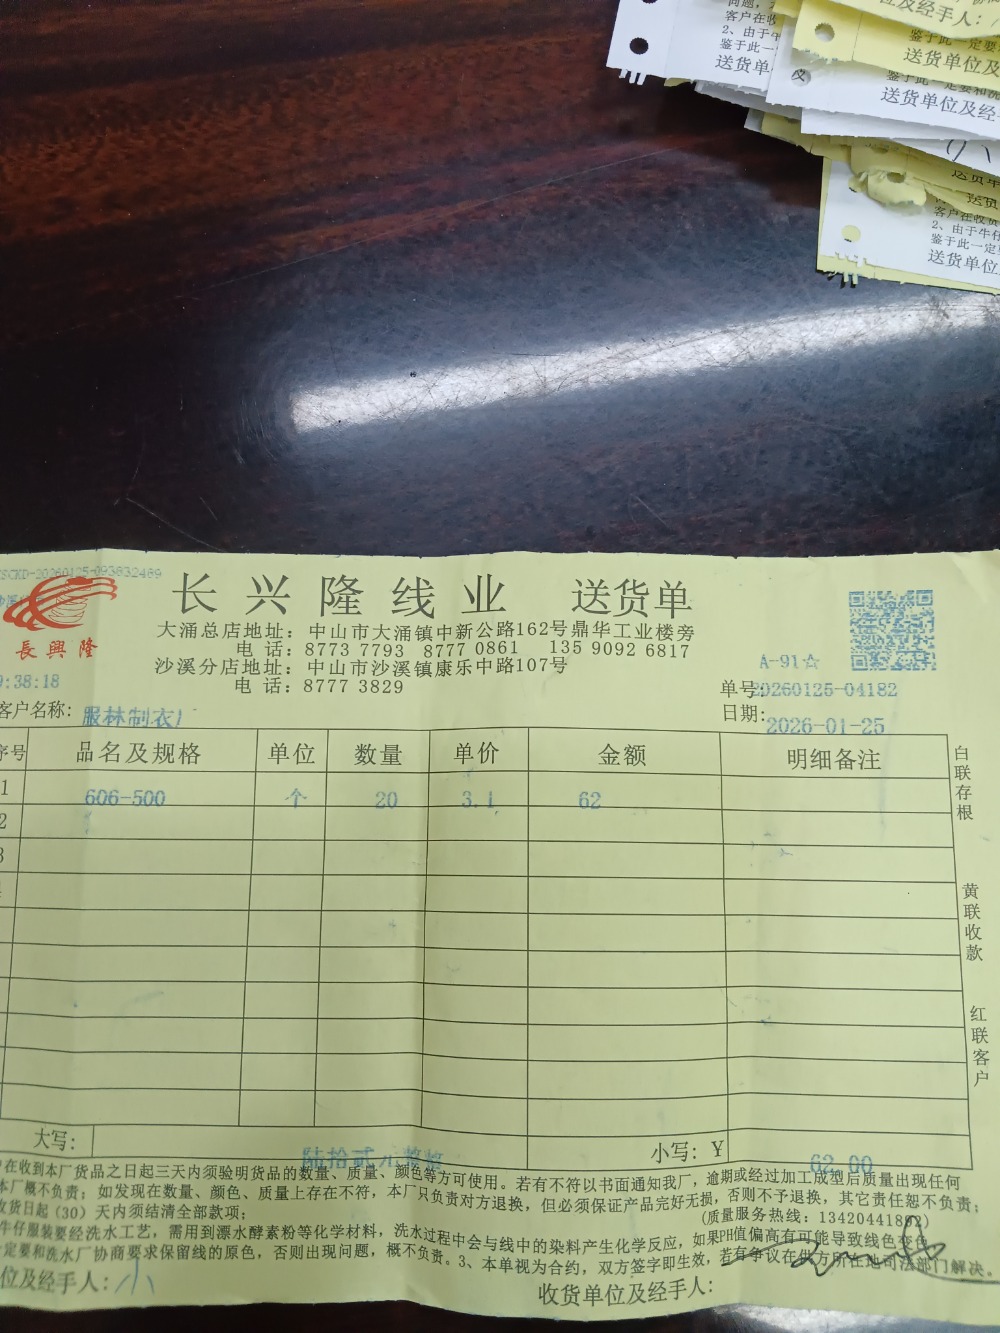 客户在收
2、由于牛
鉴于此一
送货单
及
位及经手人:
鉴于此一定要
送货单位及
送货单位及经
客户在收货
2、由于牛仔
鉴于此一定
送货单位及
SCKD-20260125-093832489
长兴隆线业 送货单
長興隆
大涌总店地址：中山市大涌镇中新公路162号鼎华工业楼旁
电 话：8773 7793 8777 0861 135 9092 6817
沙溪分店地址：中山市沙溪镇康乐中路107号
电 话：8777 3829
A-91☆
9:38:18
单号:20260125-04182
客户名称: 服林制衣厂
日期: 2026-01-25
序号 品名及规格 单位 数量 单价 金额 明细备注
1 606-500 个 20 3.1 62
2
3
白联存根
黄联收款
红联客户
大写: 陆拾贰元整 小写: ¥ 62.00
在收到本厂货品之日起三天内须验明货品的数量、质量、颜色等方可使用。若有不符以书面通知我厂，逾期或经过加工成型后质量出现任何
本厂概不负责；如发现在数量、颜色、质量上存在不符，本厂只负责对方退换，但必须保证产品完好无损，否则不予退换，其它责任恕不负责；
收货日起(30) 天内须结清全部款项；
(质量服务热线：13420441882)
牛仔服装要经洗水工艺，需用到漂水酵素粉等化学材料，洗水过程中会与线中的染料产生化学反应，如果PH值偏高有可能导致线色变色，
定要和洗水厂协商要求保留线的原色，否则出现问题，概不负责。3、本单视为合约，双方签字即生效，若有争议在供方所在地司法部门解决。
位及经手人: 小
收货单位及经手人: